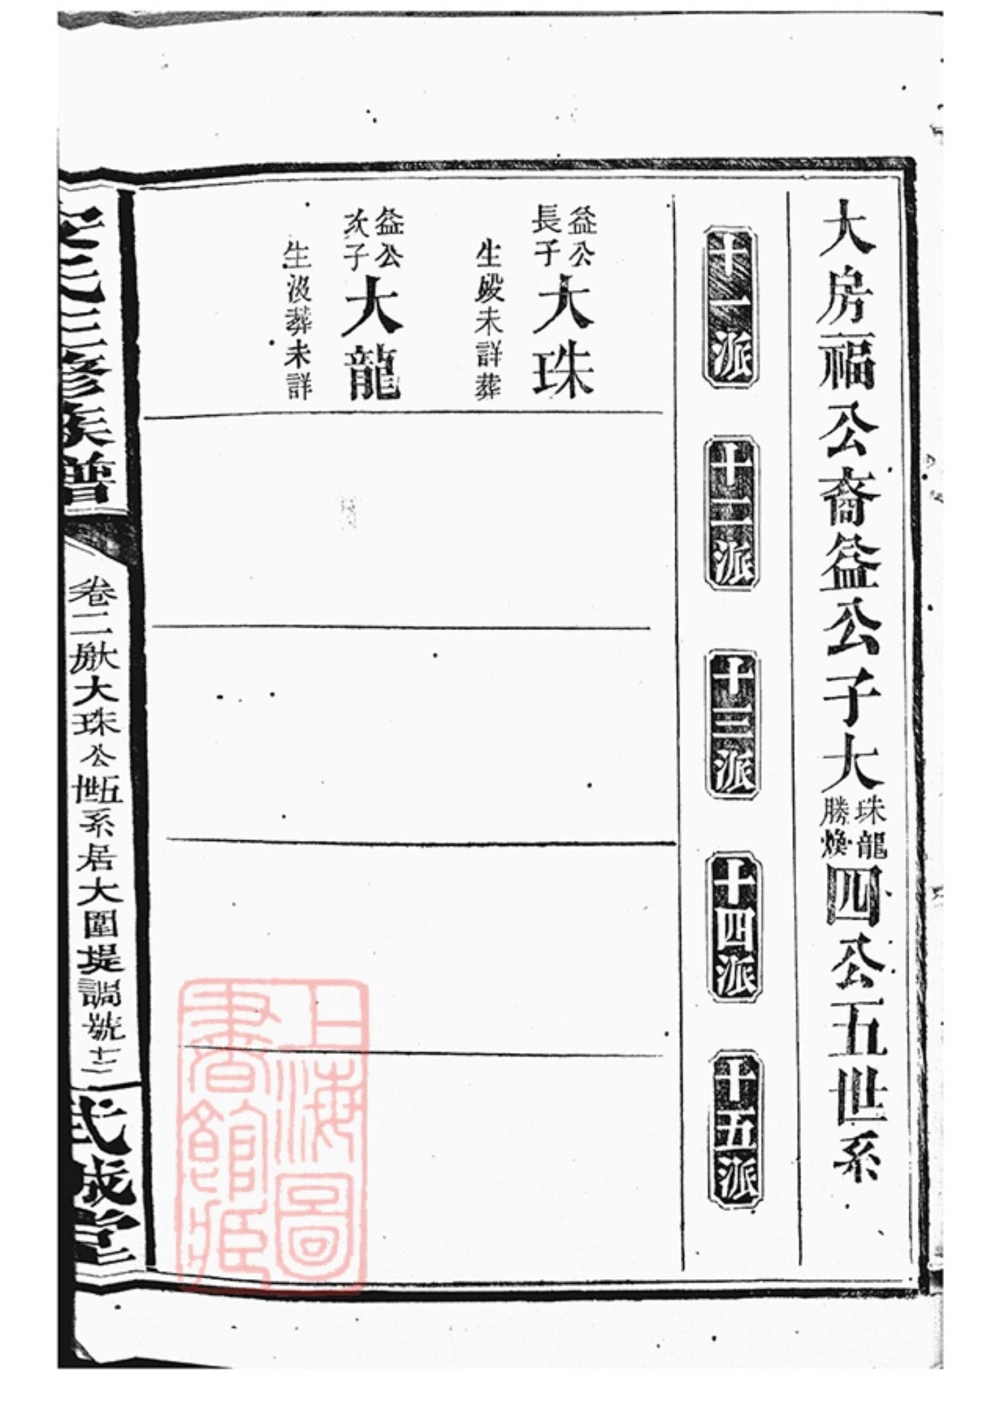 大房福公裔益公子大珠龍勝煥四公五世系
十一派
十二派
十三派
十四派
十五派
益公長子大珠
生歿未詳葬
益公次子大龍
生沒葬未詳
氏三修族譜
卷二
大珠公五世系居大圍堤調號十三
武城堂
上海圖書館藏